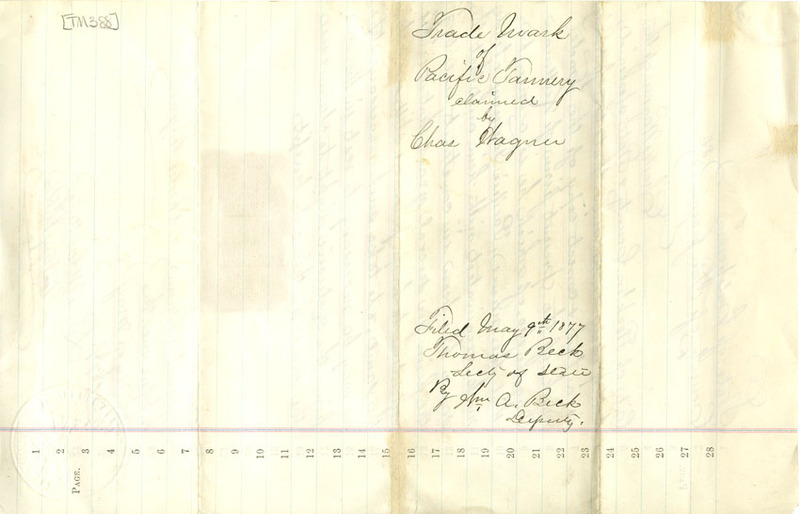 [TM388]
Trade Mark
of
Pacific Tannery
claimed
by
Chas Wagner
Filed May 9th 1877
Thomas Beck
Secty of State
By Wm A. Beck
Deputy.
1 2 3 4 5 6 7 8 9 10 11 12 13 14 15 16 17 18 19 20 21 22 23 24 25 26 27 28
PAGE.